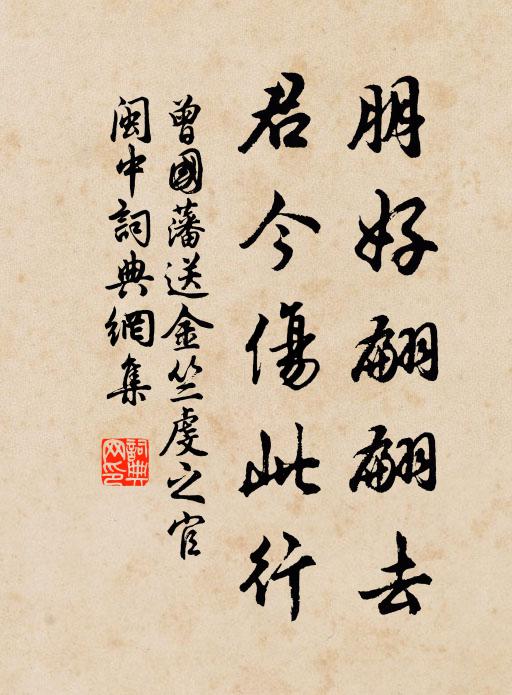 朋好翩翩去
君今傷此行
曾國藩送金竺虔之官
闽中詞典網集
詞典
网印